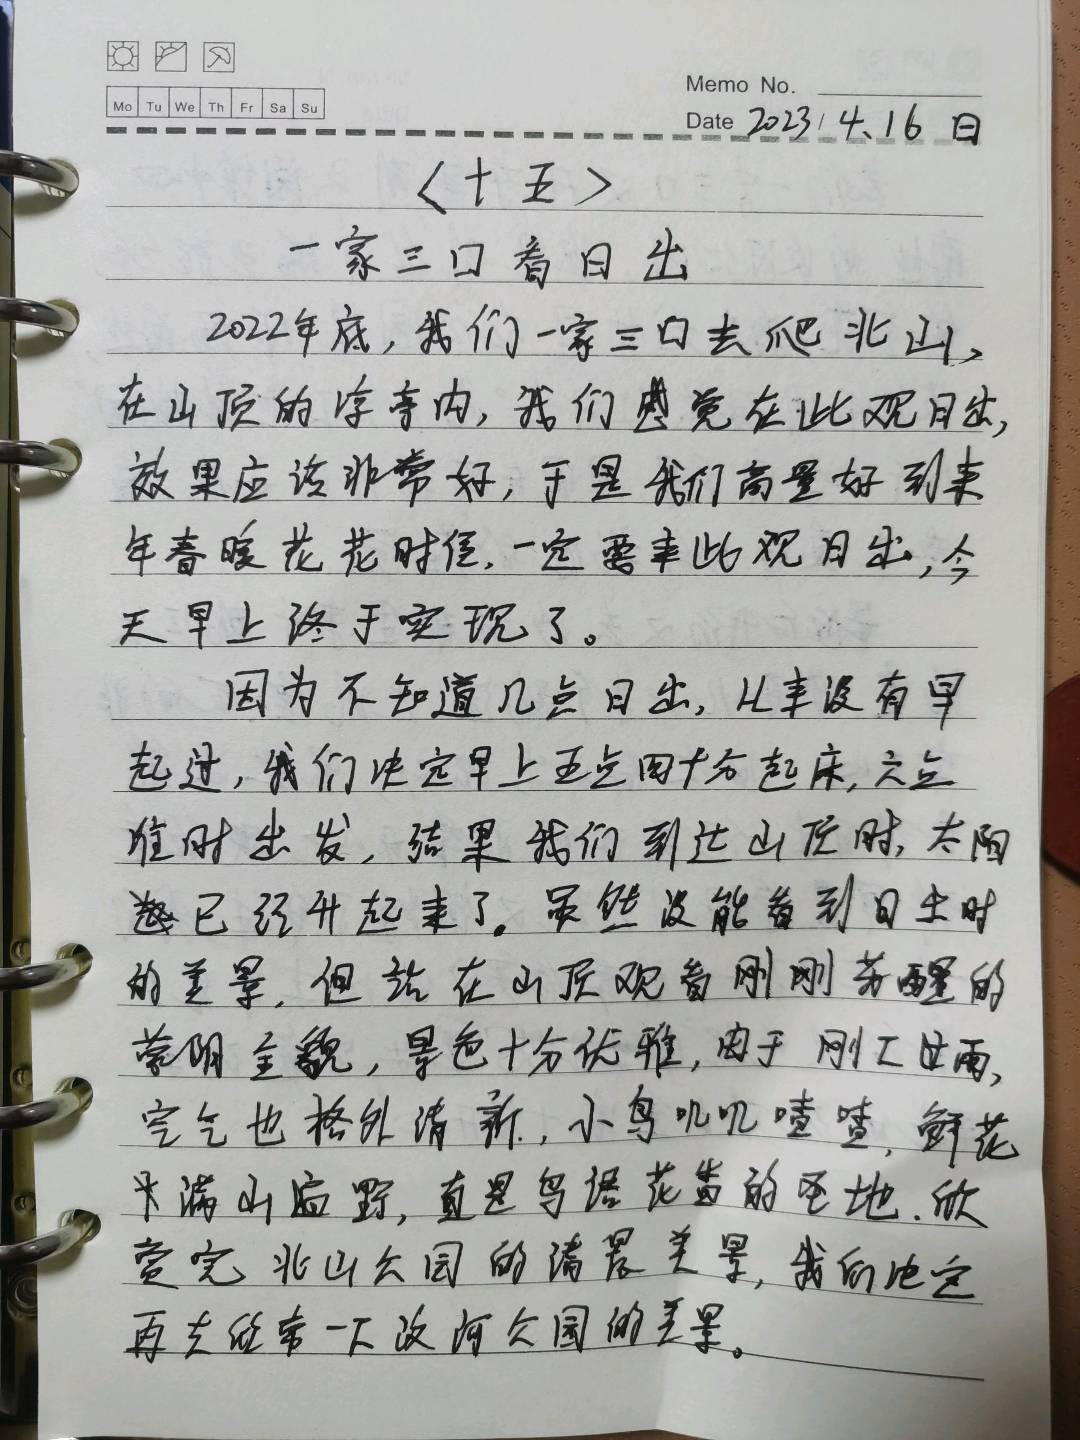 Mo Tu We Th Fr Sa Su
Memo No.
Date 2023/4.16 日
<十五>
一家三口看日出
2022年底,我们一家三口去爬北山,
在山顶的凉亭内,我们感觉在此观日出,
效果应该非常好,于是我们商量好到来
年春暖花花时信,一定要来此观日出,今
天早上终于实现了。
因为不知道几点日出,从来没有早
起过,我们决定早上五点四十分起床,六点
准时出发,结果我们到达山顶时,太阳
已经升起来了。虽然没能看到日出时
的美景,但站在山顶观看刚刚苏醒的
蒙阴全貌,景色十分优雅,由于刚下过雨,
空气也格外清新,小鸟叽叽喳喳,鲜花
满山遍野,真是鸟语花香的圣地.欣
赏完北山公园的清晨美景,我们决定
再去欣赏一下汶河公园的美景。